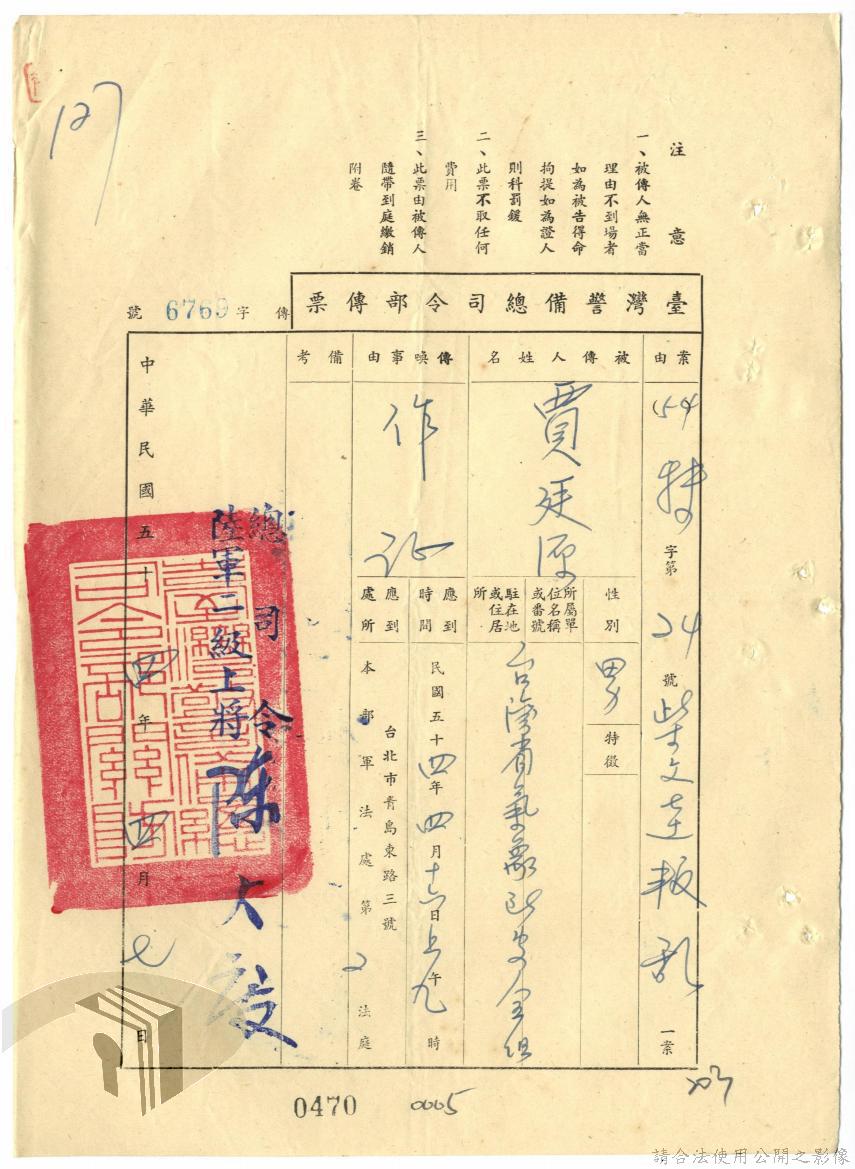 127
注意
一、被傳人無正當
理由不到場者
如為被告得命
拘提如為證人
則科罰鍰
二、此票不取任何
費用
三、此票由被傳人
隨帶到庭繳銷
附卷
臺灣警備總司令部傳票
傳字 6769 號
案由
54 特字第 24 號 柴文達叛乱一案
被傳人姓名
賈廷源
性別
男
特徵
所屬單位名稱或番號
駐在地或住居所
台灣省氣象所安全組
傳喚事由
作证
應到時間
民國五十四年四月十六日上午九時
應到處所
台北市青島東路三號
本部軍法處第 2 法庭
備考
總司令
陸軍二級上將陳大
中華民國五十四年四月七日
0470
0005
203
請合法使用公開之影像